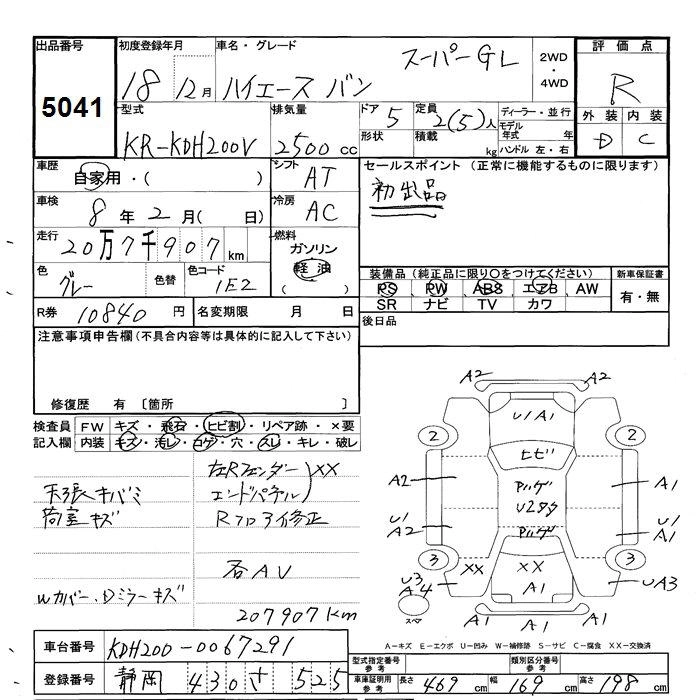 出品番号
5041
初度登録年月
18 12月
車名・グレード
ハイエース バン スーパーGL
2WD
・
4WD
評価点
R
外装 内装
D C
型式
KR-KDH200V
排気量
2500 cc
ドア 5
形状
定員 2(5)人
積載 kg
ディーラー・並行
モデル年式 年
ハンドル 左・右
車歴
自家用・( )
シフト
AT
セールスポイント(正常に機能するものに限ります)
初出品
車検
8年2月( 日)
冷房
AC
走行
20万7千907km
燃料
ガソリン
軽油
色
グレー
色替
色コード
1E2
装備品(純正品に限り○をつけてください)
PS PW ABS エアB AW
SR ナビ TV カワ
新車保証書
有・無
R券 10840円
名変期限 月 日
後日品
注意事項申告欄(不具合内容等は具体的に記入して下さい)
修復歴 有 〔箇所 〕
検査員記入欄
FW キズ・飛石・ヒビ割・リペア跡・×要
内装 キズ・汚レ・コゲ・穴・スレ・キレ・破レ
左Rフェンダー
エンドパネル
XX
天張キバミ
荷室キズ
Rフロア修正
否AV
Wカバー・Dミラーキズ
207907km
A2 A2
U1A1
2 2
ヒビ
A2 A1
Pルーゲ
U288
U1 A2
U1 A1
Pルーゲ
3 3
XX XX
U3 A4
A1
UA3
スペア
A1 A1 A1
A-キズ E-エクボ U-凹み W-補修跡 S-サビ C-腐食 XX-交換済
車台番号 KDH200-0067291
登録番号 静岡 430 さ 525
型式指定番号 参考
類別区分番号 参考
車庫証明用 参考
長さ 469cm 幅 169cm 高さ 198cm